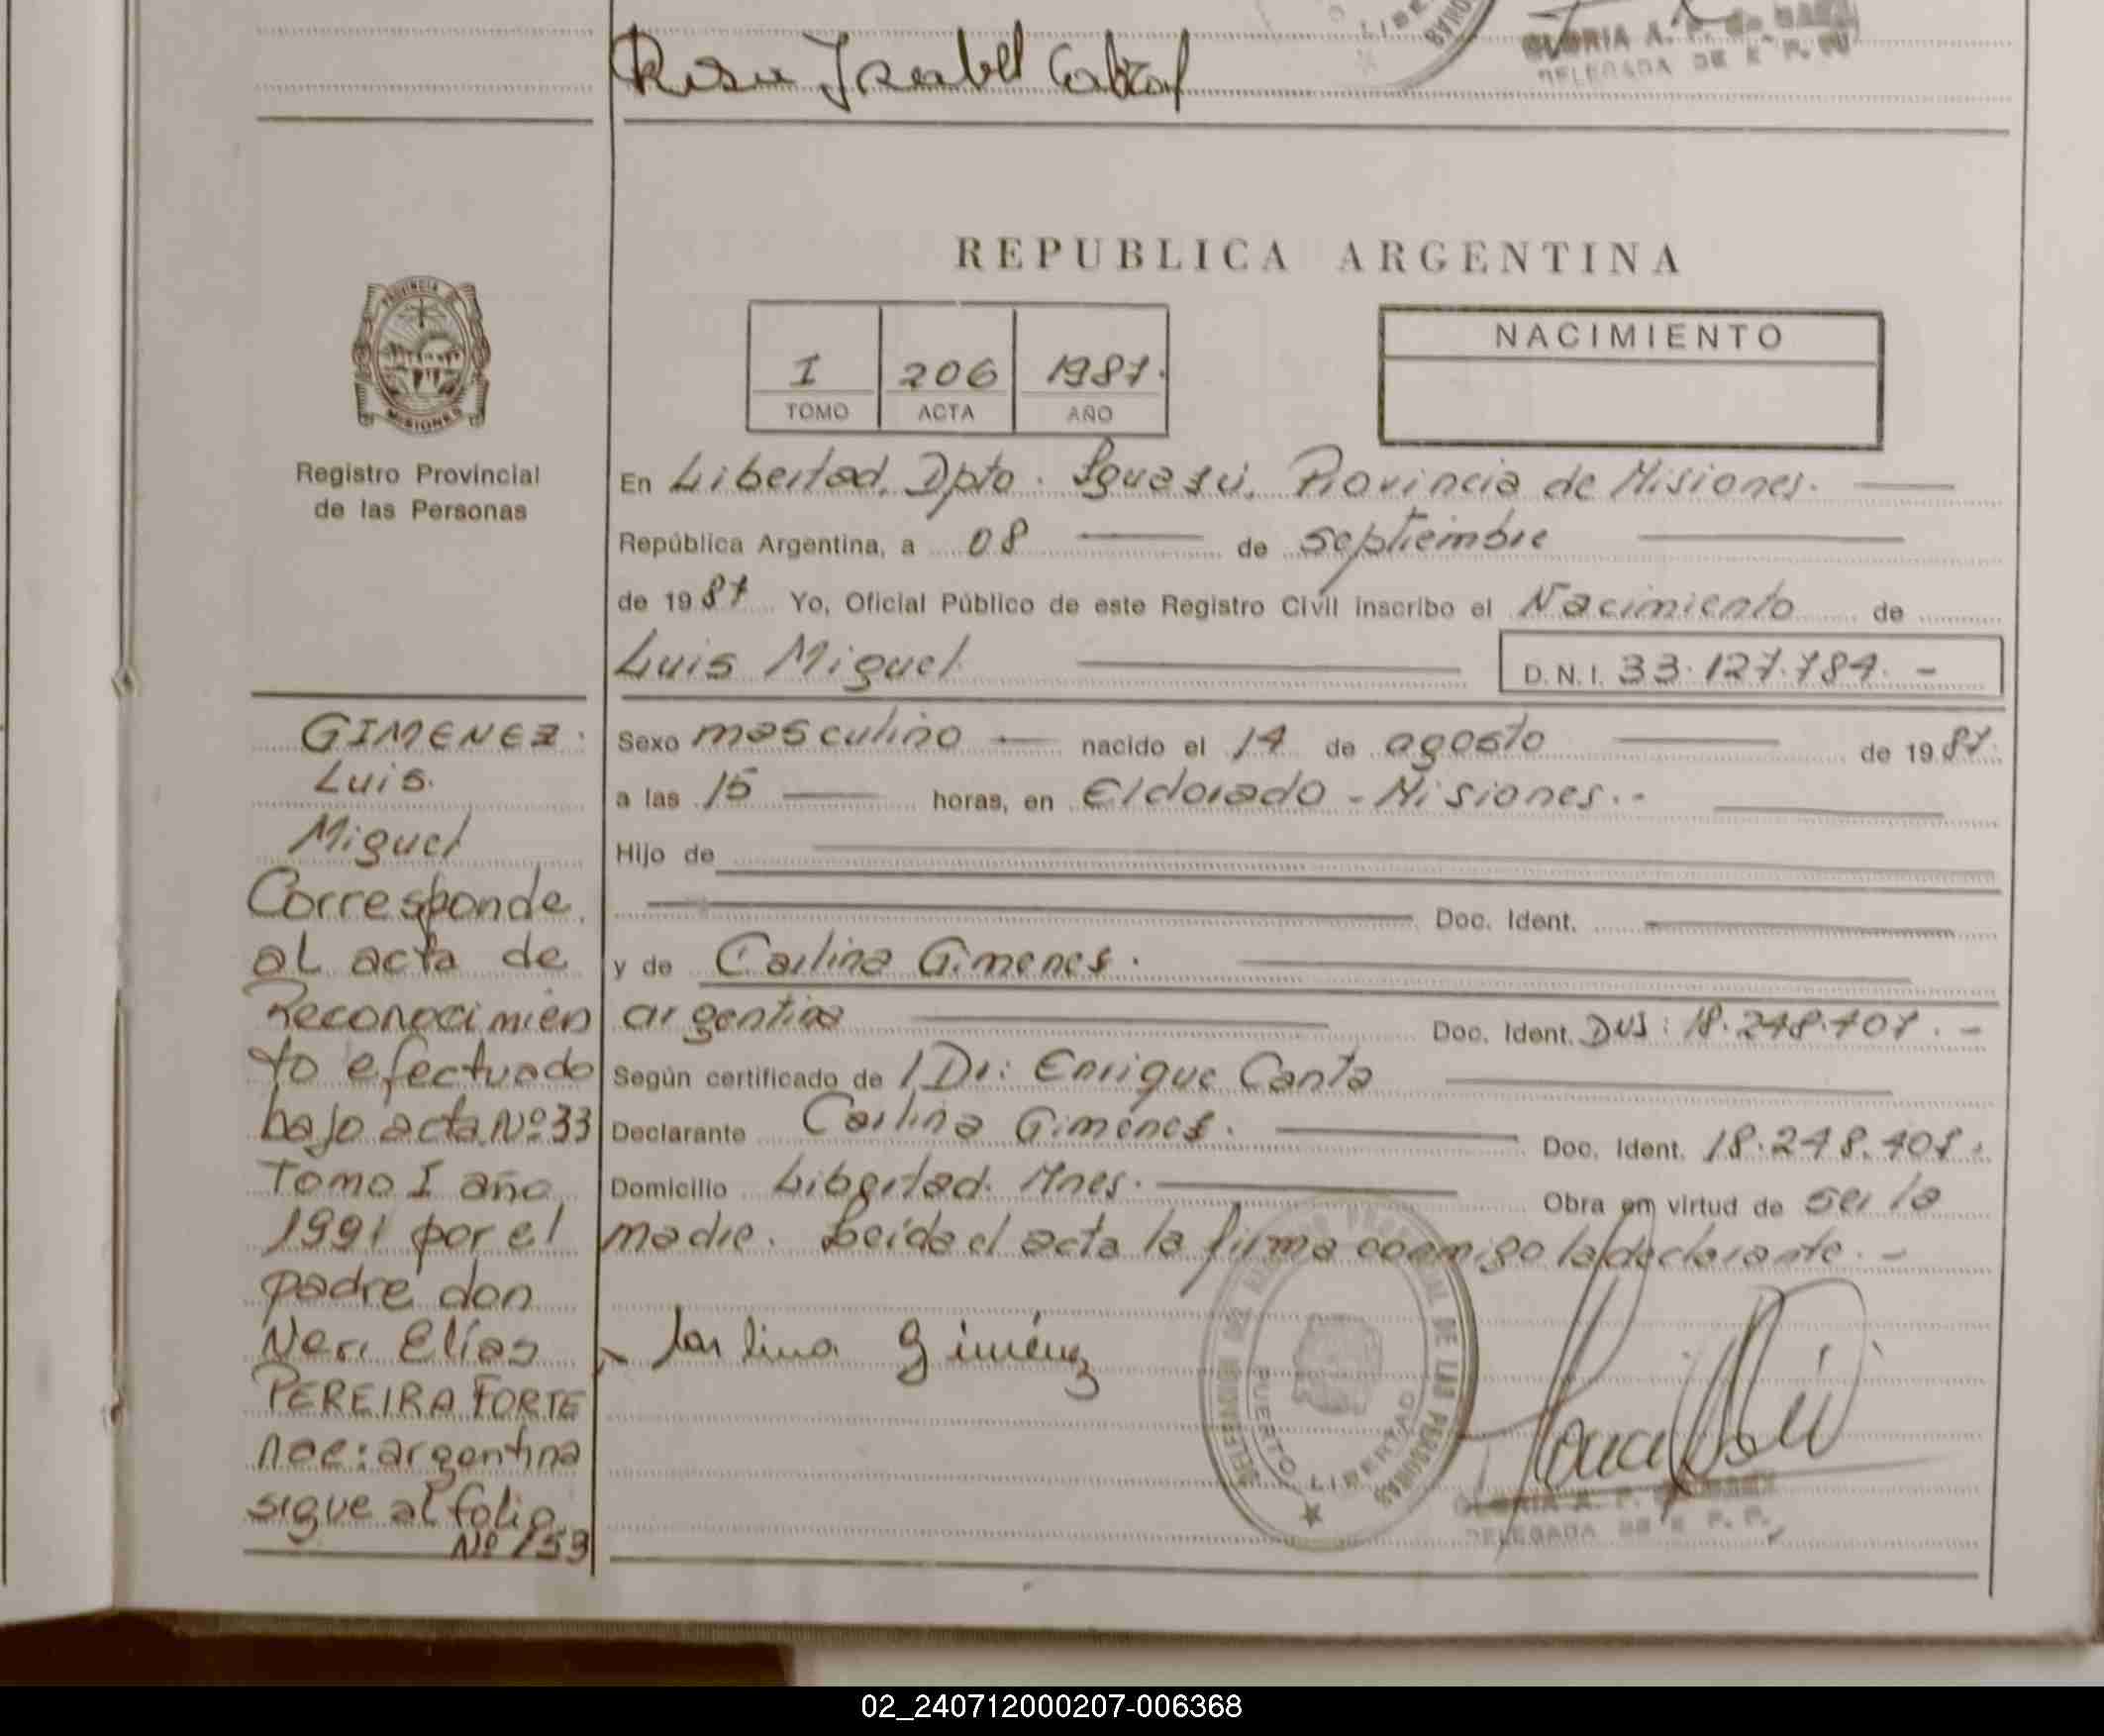 Rosa Isabel Cabral
GLORIA A. P. de
DELEGADA DE
REPUBLICA ARGENTINA
PROVINCIA DE
MISIONES
Registro Provincial
de las Personas
I 206 1987.
TOMO ACTA AÑO
NACIMIENTO
En Libertad, Dpto. Iguazú, Provincia de Misiones.
República Argentina, a 08 de septiembre
de 1987 Yo, Oficial Público de este Registro Civil inscribo el Nacimiento de
Luis Miguel D.N.I. 33.127.784. -
Sexo masculino nacido el 14 de agosto de 1987.
a las 15 horas, en Eldorado - Misiones. -
Hijo de
Doc. Ident.
y de Carlina Gimenes.
argentina Doc. Ident. DNI: 18.248.407. -
Según certificado de Dr: Enrique Canta
Declarante Carlina Gimenes. Doc. Ident. 18.248.407.
Domicilio Libertad. Mnes. Obra en virtud de ser la
madre. Leída el acta la firma conmigo la declarante. -
Carlina Giménez
GIMENEZ.
Luis.
Miguel
Corresponde
al acta de
Reconocimien
to efectuado
bajo acta Nº 33
Tomo I año
1991 por el
padre don
Neri Elías
PEREIRA FORTE
nac: argentina
sigue al folio
Nº 159
PUERTO LIBERTAD
GLORIA A. P.
DELEGADA DE R. P. P.
02_240712000207-006368